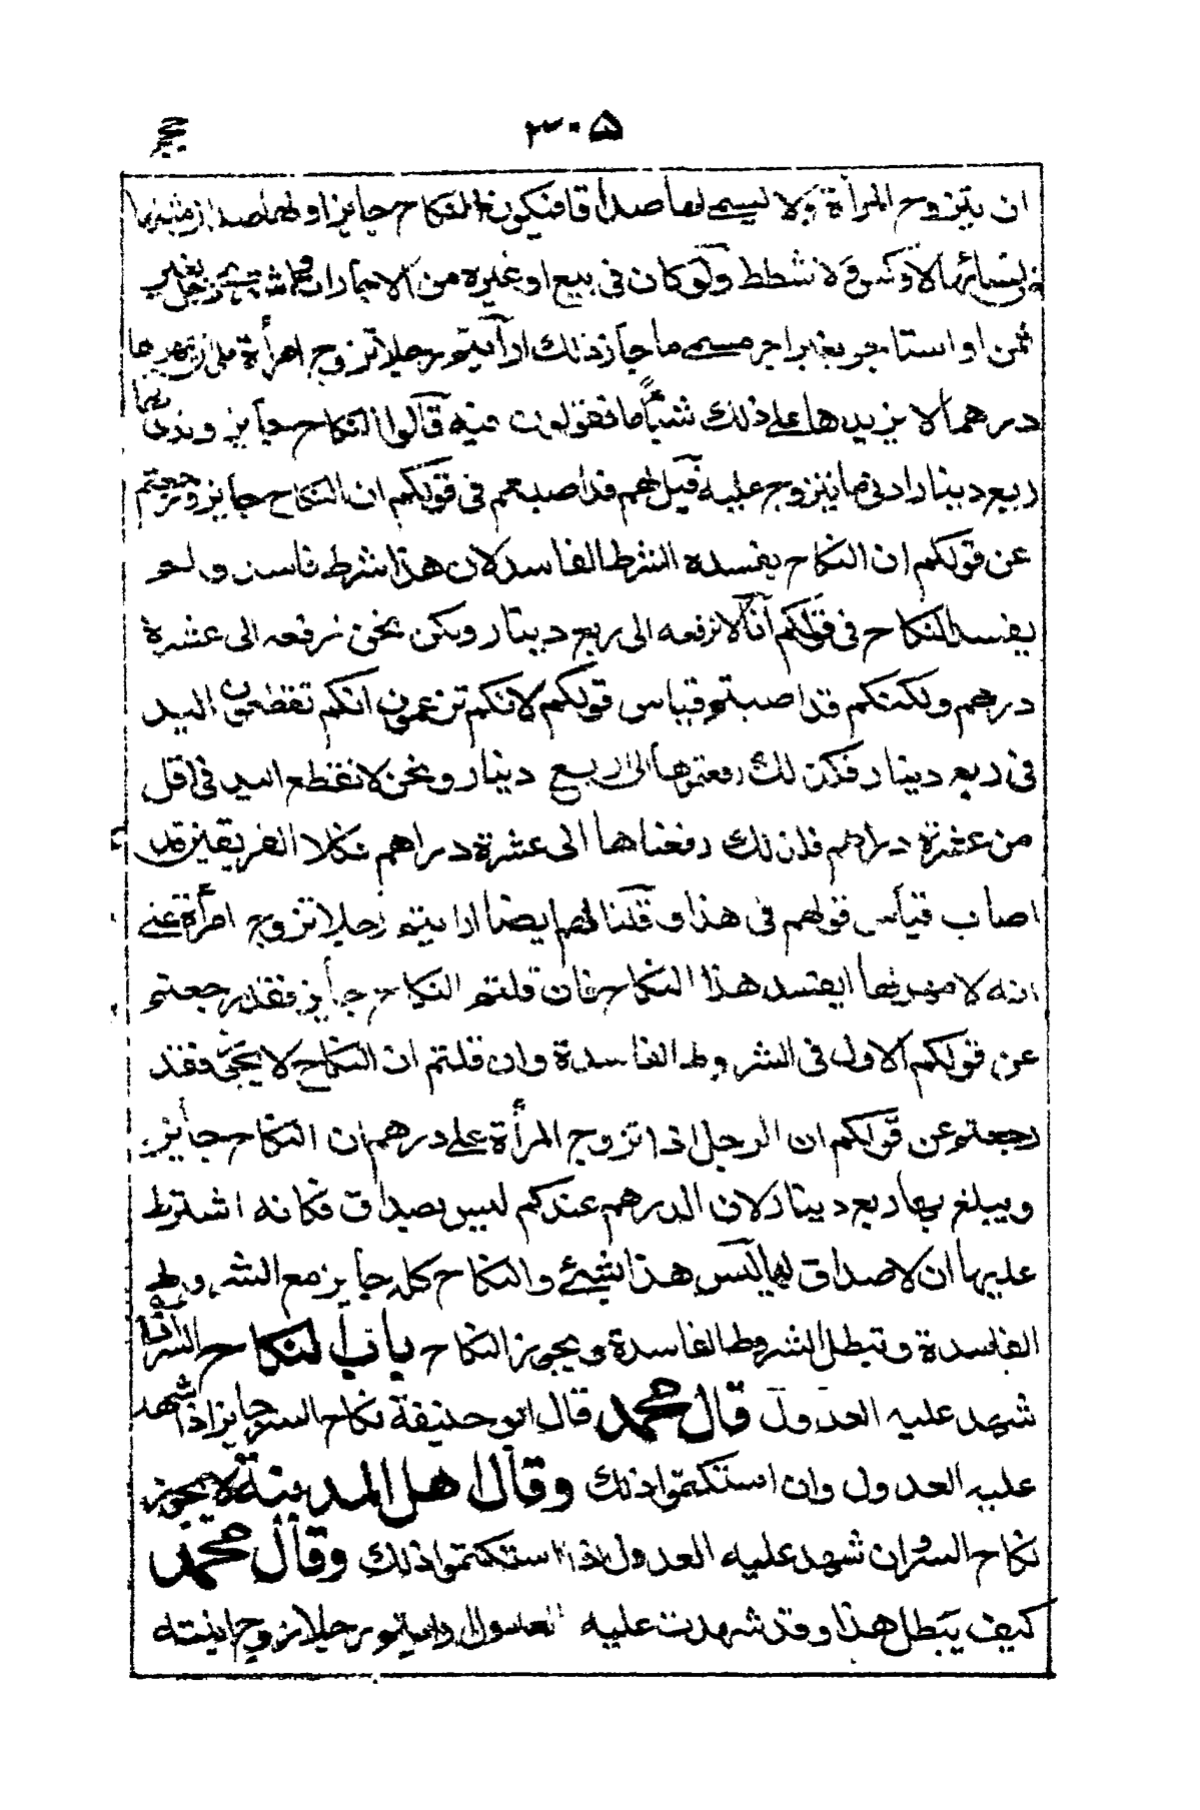 ٣٠٥
ان يتزوج المرأة ولا يسمى لها صداقا فيكون النكاح جايزا ولها صداق مثلها
نسائها لا وكس ولا شطط ولو كان في بيع او غيره من الاجارات بغير
ثمن او استاجر بغير اجر مسمى ما جاز ذلك ارأيتم رجلا تزوج امرأة على ان يمهرها
درهما لا يزيدها على ذلك شيئا ما تقولون فيه قالوا النكاح جايز
ربع دينار ادنى ما يتزوج عليه قيل لهم قد اصبتم في قولكم ان النكاح جايز ورجعتم
عن قولكم ان النكاح يفسده الشرط الفاسد لان هذا شرط فاسد ولم
يفسد النكاح في قولكم انا لا نرفعه الى ربع دينار ولكن نحن نرفعه الى عشرة
درهم ولكنكم قد اصبتم قياس قولكم لانكم تزعمون انكم تقطعون اليد
في ربع دينار فلذلك رفعتموها الى ربع دينار ونحن لا نقطع اليد في اقل
من عشرة دراهم فلذلك رفعناها الى عشرة دراهم فكلا الفريقين قد
اصاب قياس قولهم في هذا وقلنا لهم ايضا ارايتم رجلا تزوج امرأة على
انه لا مهر لها ايفسد هذا النكاح فان قلتم النكاح جايز فقد رجعتم
عن قولكم الاول في الشروط الفاسدة وان قلتم ان النكاح لا يجوز فقد
رجعتم عن قولكم ان الرجل اذا تزوج المرأة على درهم ان النكاح جايز
ويبلغ بها ربع دينار لان الدرهم عندكم ليس بصداق فكانه اشترط
عليها ان لا صداق لها ليس هذا بشئ والنكاح كله جايز مع الشروط
الفاسدة وتبطل الشروط الفاسدة ويجوز النكاح باب النكاح السر اذا
شهد عليه العدول قال محمد قال ابو حنيفة نكاح السر جايز اذا شهد
عليه العدول وان استكتموا ذلك وقال اهل المدينة لا يجوز
نكاح السر وان شهد عليه العدول اذا استكتموا ذلك وقال محمد
كيف يبطل هذا وقد شهدت عليه العدول ارايتم رجلا زوج ابنته